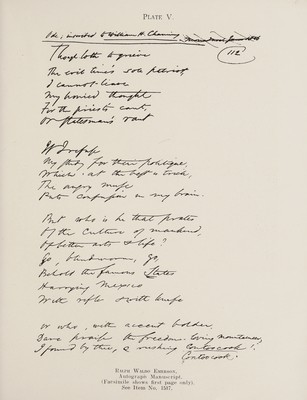 PLATE V
Ode, inscribed to William H. Channing
112
Though loth to grieve
The evil time's sole patriot,
I cannot leave
My honied thought
For the priest's cant,
Or statesman's rant
If I refuse
My study for their politique,
Which at the best is trick,
The angry muse
Puts confusion in my brain.
But who is he that prates
Of the culture of mankind,
Of better arts & life?
Go, blindworm, go,
Behold the famous States
Harrying Mexico
With rifle & with knife
Or who, with accent bolder,
Dare praise the freedom-loving mountaineer,
I found by thee, O rushing Contoocook!
Contoocook!
RALPH WALDO EMERSON,
Autograph Manuscript.
(Facsimile shows first page only).
See Item No. 1587.